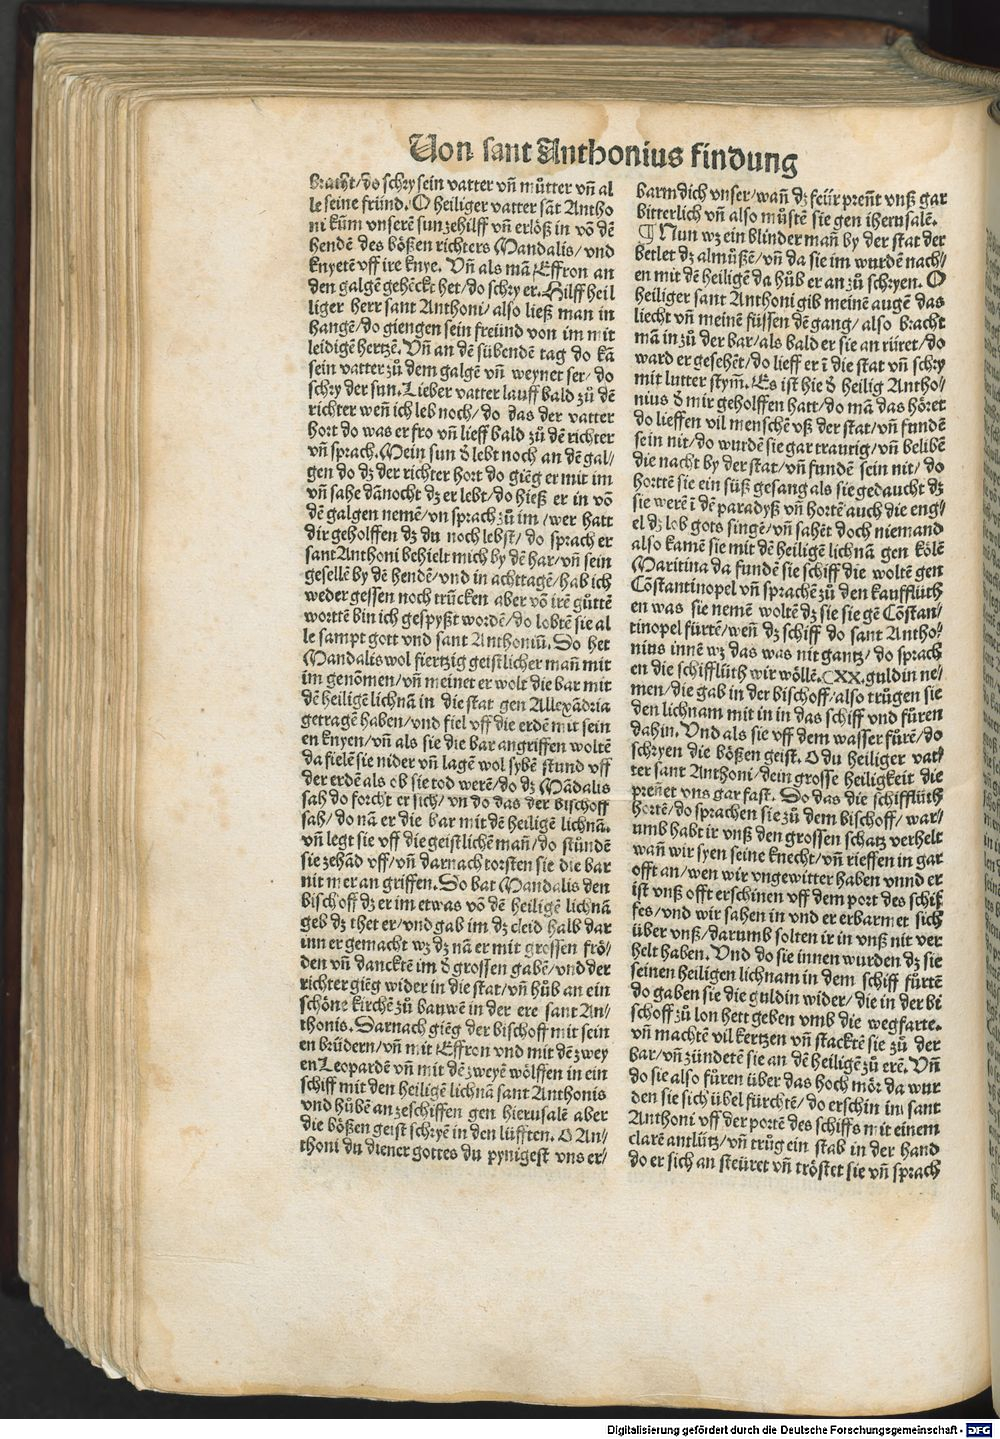 Von sant Anthonius findung
bracht/do schry sein vatter vñ můtter vñ al
le seine fründ. O heiliger vatter sāt Antho
ni kum̄ vnserē sun zehilff vñ erlöß in vō dē
hendē des bößen richters Mandalis/vnd
knyetē vff ire knye. Vñ als mā Effron an
den galgē gehēckt het/do schry er. Hilff heil
liger herr sant Anthoni/also ließ man in
hangē/do giengen sein freünd von im mit
leidigē hertzē. Vñ an dē sübendē tag do kā
sein vatter zů dem galgē vñ weynet ser/do
schry der sun. Lieber vatter lauff bald zů dē
richter weñ ich leb noch/do das der vatter
hort do was er fro vñ lieff bald zů dē richter
vñ sprach. Mein sun d̕ lebt noch an dē gal/
gen do dz der richter hort do giēg er mit im
vñ sahe dānocht dz er lebt/do hieß er in vō
dē galgen nemē/vn sprach zů im/wer hatt
dir geholffen dz du noch lebst/do sprach er
sant Anthoni behielt mich by dē har/vñ sein
gesellē by dē hendē/vnd in acht tagē/hab ich
weder gessen noch trūcken aber vō irē gūttē
worttē bin ich gespyßt wordē/do lobtē sie al
le sampt gott vnd sant Anthoniū. Do het
Mandalis wol fiertzig geistlicher mañ mit
im genōmen/vñ meinet er wolt die bar mit
dē heiligē lichnā in die stat gen Allexādria
getragē haben/vnd fiel vff die erdē mit sein
en knyen/vñ als sie die bar angriffen woltē
da fielē sie nider vñ lagē wol sybē stund vff
der erdē als ob sie tod werē/do dz Mādalis
sah do forcht er sich/vn do das der bischoff
sah/do nā er die bar mit dē heiligē lichnā.
vñ legt sie vff die geistlichē mañ/do stůndē
sie zehād vff/vñ darnach torsten sie die bar
nit mer an griffen. Do bat Mandalis den
bischoff dz er im etwas vō dē heiligē lichnā
geb dz thet er/vnd gab im dz cleid halb dar
inn er gemacht wz dz nā er mit grossen frö/
den vñ dancktē im d̕ grossen gabē/vnd der
richter giēg wider in die stat/vñ hůb an ein
schöne kirchē zů bauwē in der ere sant An/
thonis. Darnach giēg der bischoff mit sein
en brüdern/vñ mit Effron vnd mit dē zwey
en Leopardē vñ mit dē zweyē wölffen in ein
schiff mit den heiligē lichnā sant Anthonis
vnd hůbē an zeschiffen gen hierusalē aber
die bößen geist schryē in den lüfften. O An/
thoni du diener gottes du pynigest vns er/
barm dich vnser/wañ dz feür preñt vnß gar
bitterlich vñ also můstē sie gen iherusalē.
¶ Nun wz ein blinder mañ by der stat der
betlet dz almůßē/vñ da sie im wurdē nach/
en mit dē heiligē da hůb er an zů schryen. O
heiliger sant Anthoni gib meinē augē das
liecht vñ meinē füssen dē gang/also bracht
mā in zů der bar/als bald er sie an rüret/do
ward er gesehēt/do lieff er ī die stat vñ schry
mit lutter stym̄. Es ist hie d̕ heilig Antho/
nius d̕ mir geholffen hatt/do mā das höret
do lieffen vil menschē vß der stat/vñ fundē
sein nit/do wurdē sie gar traurig/vñ belibē
die nacht by der stat/vñ fundē sein nit/do
horttē sie ein süß gesang als sie gedaucht dz
sie werē ī dē paradyß vñ hortē auch die eng/
el dz lob gots singē/vñ sahēt doch niemand
also kamē sie mit dē heiligē lichnā gen kölē
Maritina da fundē sie schiff die woltē gen
Cōstantinopel vñ sprachē zů den kaufflüth
en was sie nemē woltē dz sie sie gē Cōstan/
tinopel fürtē/weñ dz schiff do sant Antho/
nius innē wz das was nit gantz/do sprach
en die schifflüth wir wöllē. CXX. guldin ne/
men/die gab in der bischoff/also trůgen sie
den lichnam mit in in das schiff vnd fůren
dahin. Vnd als sie vff dem wasser fůrē/do
schryen die bößen geist. O du heiliger vat/
ter sant Anthoni/dein grosse heiligkeit die
preñet vns gar fast. Do das die schifflüth
hortē/do sprachen sie zů dem bischoff/war/
umb habt ir vnß den grossen schatz verhelt
wañ wir syen seine knecht/vñ rieffen in gar
offt an/wen wir vngewitter haben vnnd er
ist vnß offt erschinen vff dem port des schif
fes/vnd wir sahen in vnd er erbarmet sich
über vnß/darumb solten ir in vnß nit ver
helt haben. Vnd do sie innen wurden dz sie
seinen heiligen lichnam in dem schiff fürtē
do gaben sie die guldin wider/die in der bi
schoff zů lon hett geben vmb die wegfarte.
vñ machtē vil kertzen vñ stacktē sie zů der
bar/vñ zündetē sie an dē heiligē zů erē. Vñ
do sie also fůren über das hoch mōr da wur
den sie sich übel fürchtē/do erschin im sant
Anthoni vff der portē des schiffs mit einem
clarē antlütz/vñ trůg ein stab in der hand
do er sich an steüret vñ tröstet sie vñ sprach
Digitalisierung gefördert durch die Deutsche Forschungsgemeinschaft - DFG